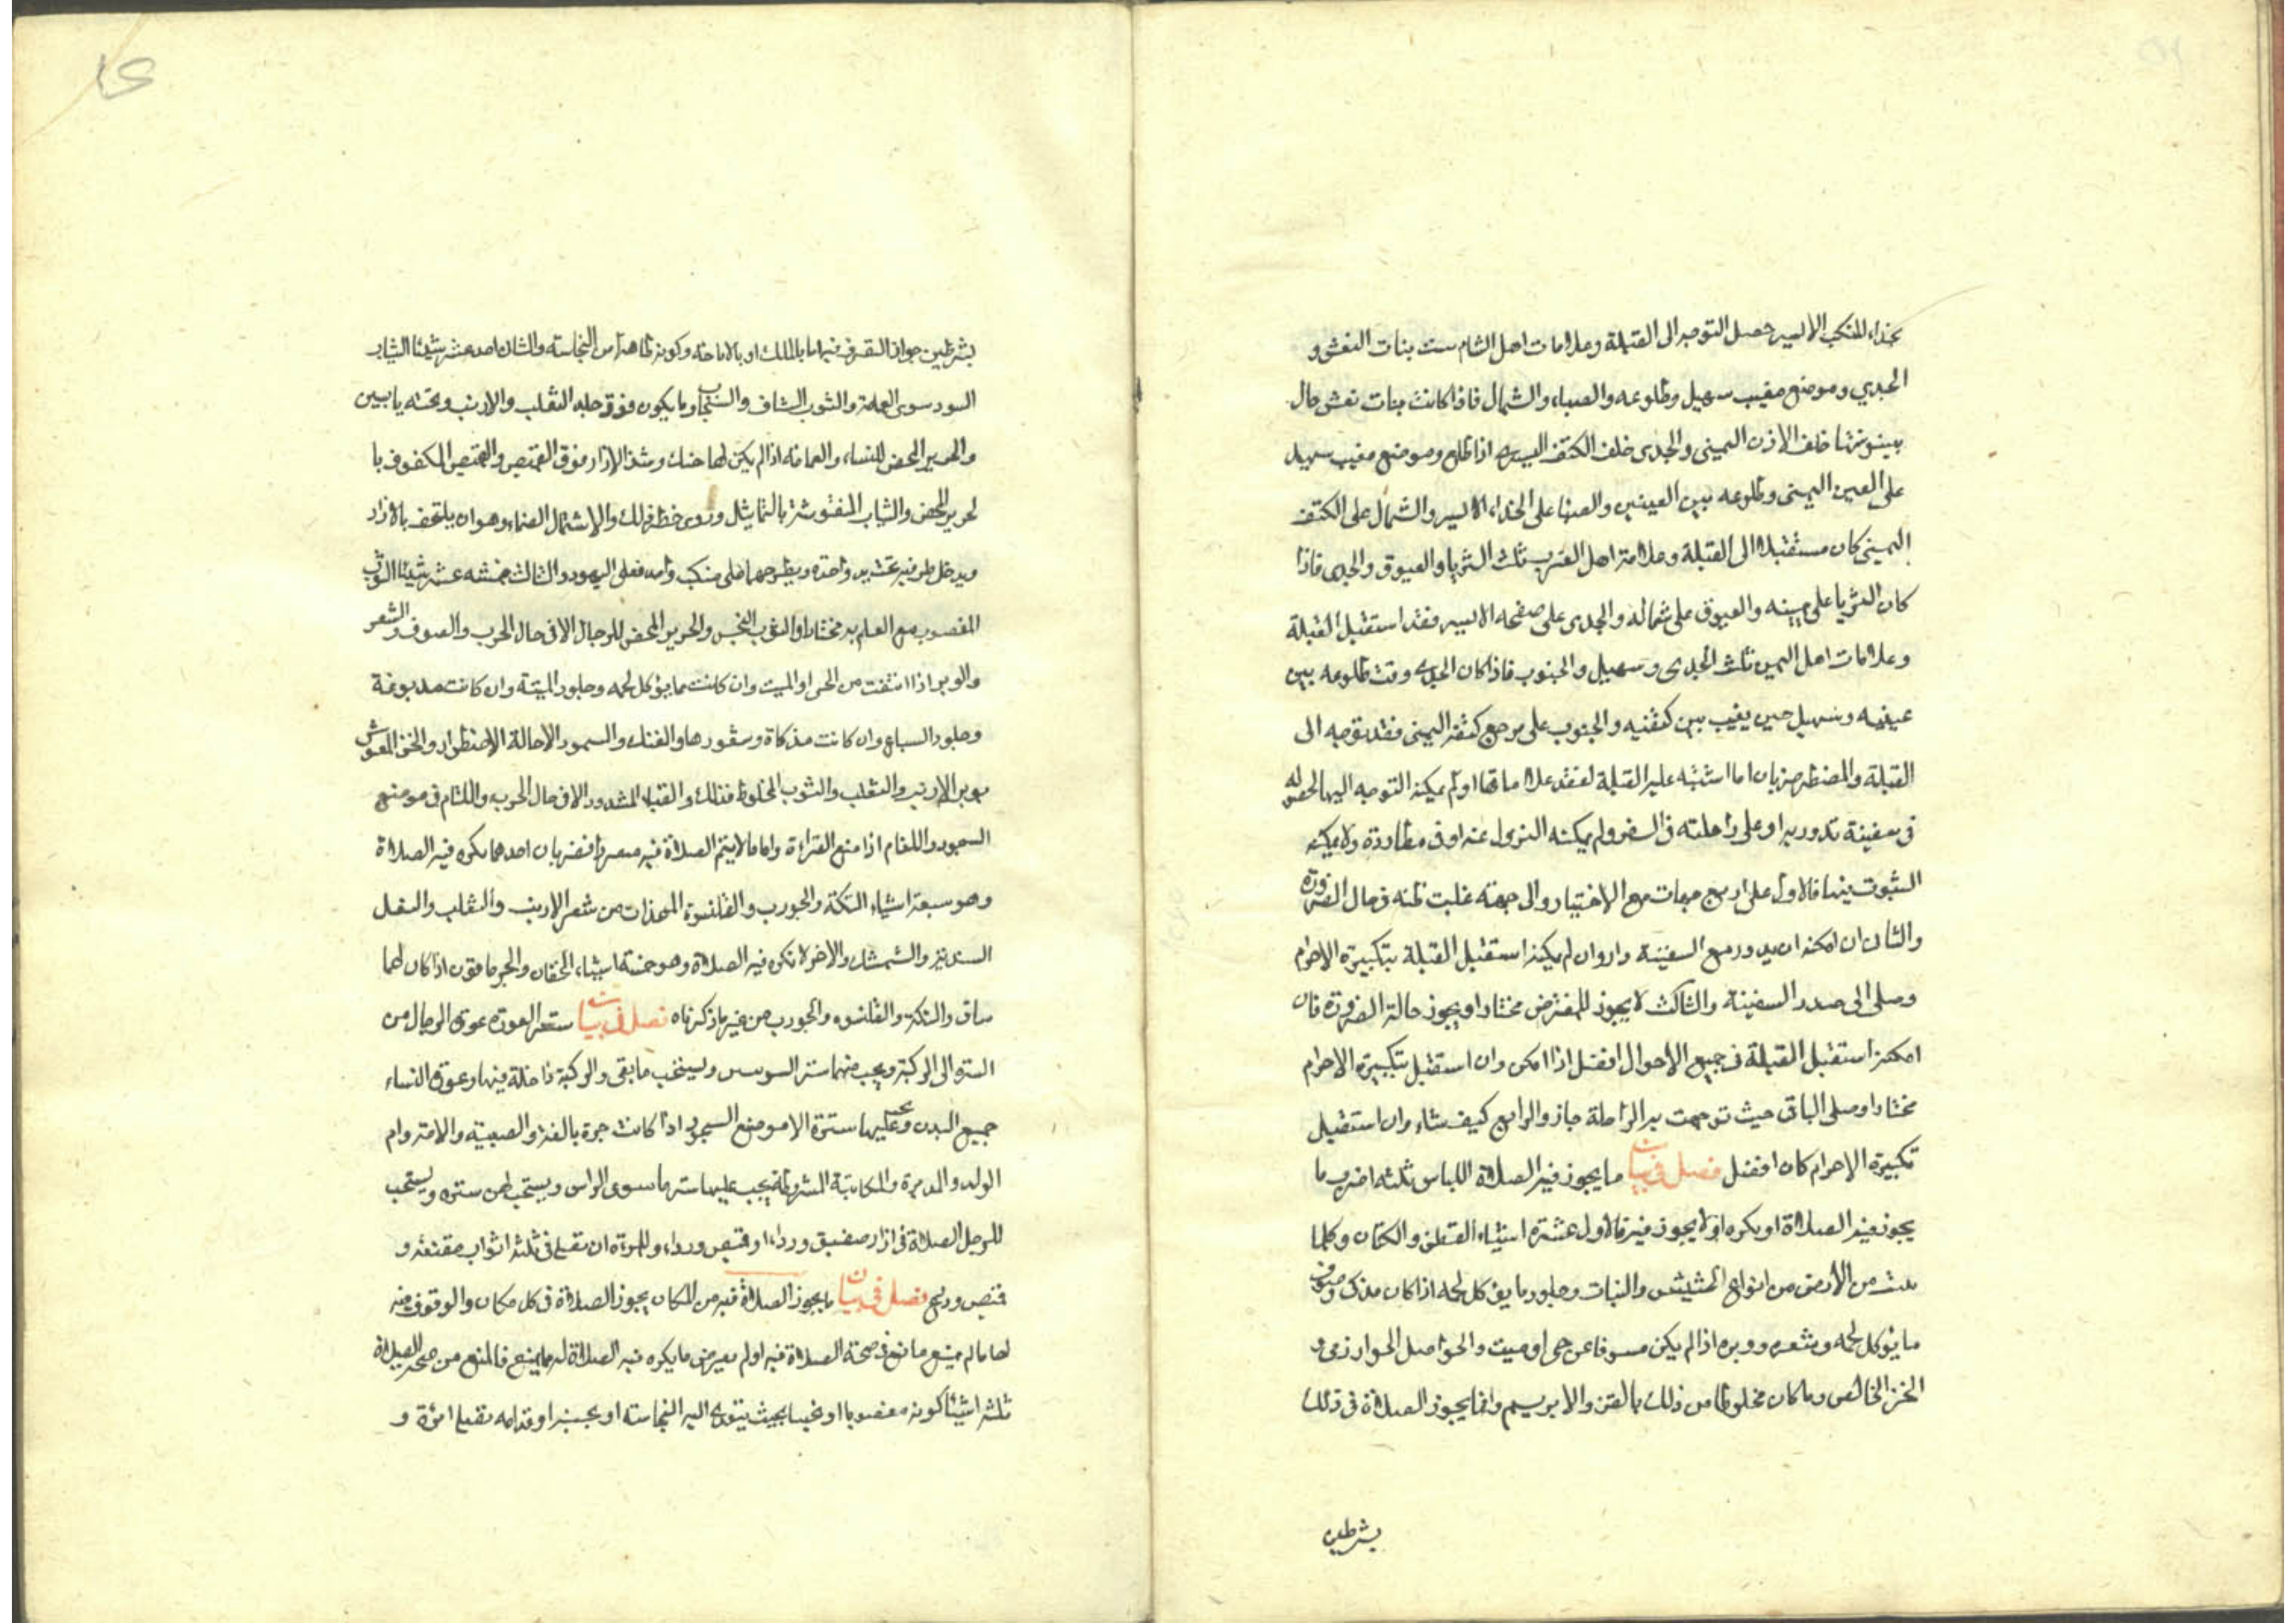 بحذاء المنكب الايسر حصل التوجه الى القبلة وعلامات اهل الشام ست بنات النعش و
الجدي وموضع مغيب سهيل وطلوعه والصباء والشمال فاذا كانت بنات نعش حال
بينونتها خلف الاذن اليمنى والجدى خلف الكتف اليسرى اذا طلع وموضع مغيب سهيل
على العين اليمنى وطلوعه بين العينين والصبا على الخداء الايسر والشمال على الكتف
اليمنى كان مستقبلا الى القبلة وعلامة اهل الغرب ثلث الثريا والعيوق والجدى فاذا
كان الثريا على يمينه والعيوق على شماله والجدى على صفحه الايسر فقد استقبل القبلة
وعلامات اهل اليمن ثلث الجدى وسهيل والجنوب فاذا كان الجدى وقت طلوعه بين
عينيه وسهيل حين يغيب بين كتفيه والجنوب على مرجع كتفه اليمنى فقد توجه الى
القبلة والمضطر ضربان اما اشتبه عليه القبلة لفقد علاماتها او لم يمكنه التوجه اليها لحصوله
فى سفينة تدور به او على راحلته فى السفر ولم يمكنه النزول عنه او فى مطاردة ولا يمكنه
الثبوت فيها فالاول على اربع جهات مع الاختيار والى جهته غلبت ظنه فى حال الضرورة
والثان ان امكنه ان يدور مع السفينة دار وان لم يمكنه استقبل القبلة بتكبيرة الاحرام
وصلى الى صدر السفينة والثالث لا يجوز للمفترض مختارا ويجوز حالة الضرورة فان
امكنه استقبل القبلة فى جميع الاحوال افضل اذا امكن وان استقبل بتكبيرة الاحرام
مختارا وصلى الباقى حيث توجهت به الراحلة جاز والرابع كيف شاء وان استقبل
تكبيرة الاحرام كان افضل فصل فى بيان ما يجوز فيه الصلاة اللباس ثلثه اضرب ما
يجوز فيه الصلاة او يكره او لا يجوز فيه فالاول عشرة اشياء القطن والكتان وكلما
ينبت من الارض من انواع الحشيش والنبات وجلود ما يؤكل لحمه اذا كان مذكى وصوف
ما يؤكل لحمه وشعره ووبره اذا لم يكن منتوفا عن حى او ميت والحواصل الخوارزمى و
الخز الخالص وما كان مخلوطا من ذلك بالقز والابريسم وانما يجوز الصلاة فى ذلك
بشرطين
بشرطين جواز التصرف فيه اما بالملك او بالاباحة وكونه طاهرا من النجاسته والثان احد عشر شيئا الثياب
السود سوى العمامة والثوب الشاف والسنجاب وما يكون فوق جلد الثعلب والارنب وتحته يابسين
والحرير المحض للنساء والعمامة اذا لم يكن لها حنك وشد الازار فوق القميص والقميص المكفوف با
لحرير المحض والثياب المنقوشة بالتماثيل وروى حظر ذلك والاشتمال الصماء وهو ان يلتحف بالازار
ويدخل طرفيه تحت يده واحدة ويطرحهما على منكب واحد فعل اليهود والثالث خمسه عشر شيئا الثوب
المغصوب مع العلم به مختارا والثوب النجس والحرير المحض للرجال الا فى حال الحرب والصوف والشعر
والوبر اذا انتفت من الحى او الميت وان كانت مما يؤكل لحمه وجلود الميتة وان كانت مدبوغة
وجلود السباع وان كانت مذكاة وسمورها والفنك والسمور الا حالة الاضطرار والخز المغشوش
بوبر الارنب والثعلب والثوب المخلوط فذلك والقباء المشدود الا فى حال الحرب واللثام فى موضع
السجود واللغام اذا منع القراءة واما ما لا يتم الصلاة فيه مفردا فضربان احدهما يكره فيه الصلاة
وهو سبعة اشياء التكة والجورب والقلنسوة المتخذات من شعر الارنب والثعلب والنعل
السندية والشمشك والاخر لا تكره فيه الصلاة وهو خمسة اشياء الخفان والجرموقون اذا كان لهما
ساق والتكة والقلنسوه والجورب من غير ما ذكرناه فصل فى بيان ستر العورة عورة الرجال من
السرة الى الركبة ويجب منهما ستر السوتين ويستحب ما بقى والركبة داخلة فيها وعورة النساء
جميع البدن ويجب عليها ستره الا موضع السجود اذا كانت حرة بالغة والصبية والامة وام
الولد والمدبرة والمكاتبة المشروطة يجب عليها ستر ما سوى الراس ويستحب لهن ستره ويستحب
للرجل الصلاة فى ازار صفيق ورداء او قميص ورداء وللمرأة ان تصلى فى ثلثه اثواب مقنعه و
قميص ودرع فصل فى بيان ما يجوز الصلاة فيه من المكان يجوز الصلاة فى كل مكان والوقوف فيه
لها ما لم يمنع مانع فى صحة الصلاة فيه او لم يعرض ما يكره فيه الصلاة فالمنع من صحة الصلاة
ثلثه اشيئا كونه مغصوبا او نجسا بحيث يتعدى اليه النجاسته او بجنبه او قدامه تصلى امرأة و